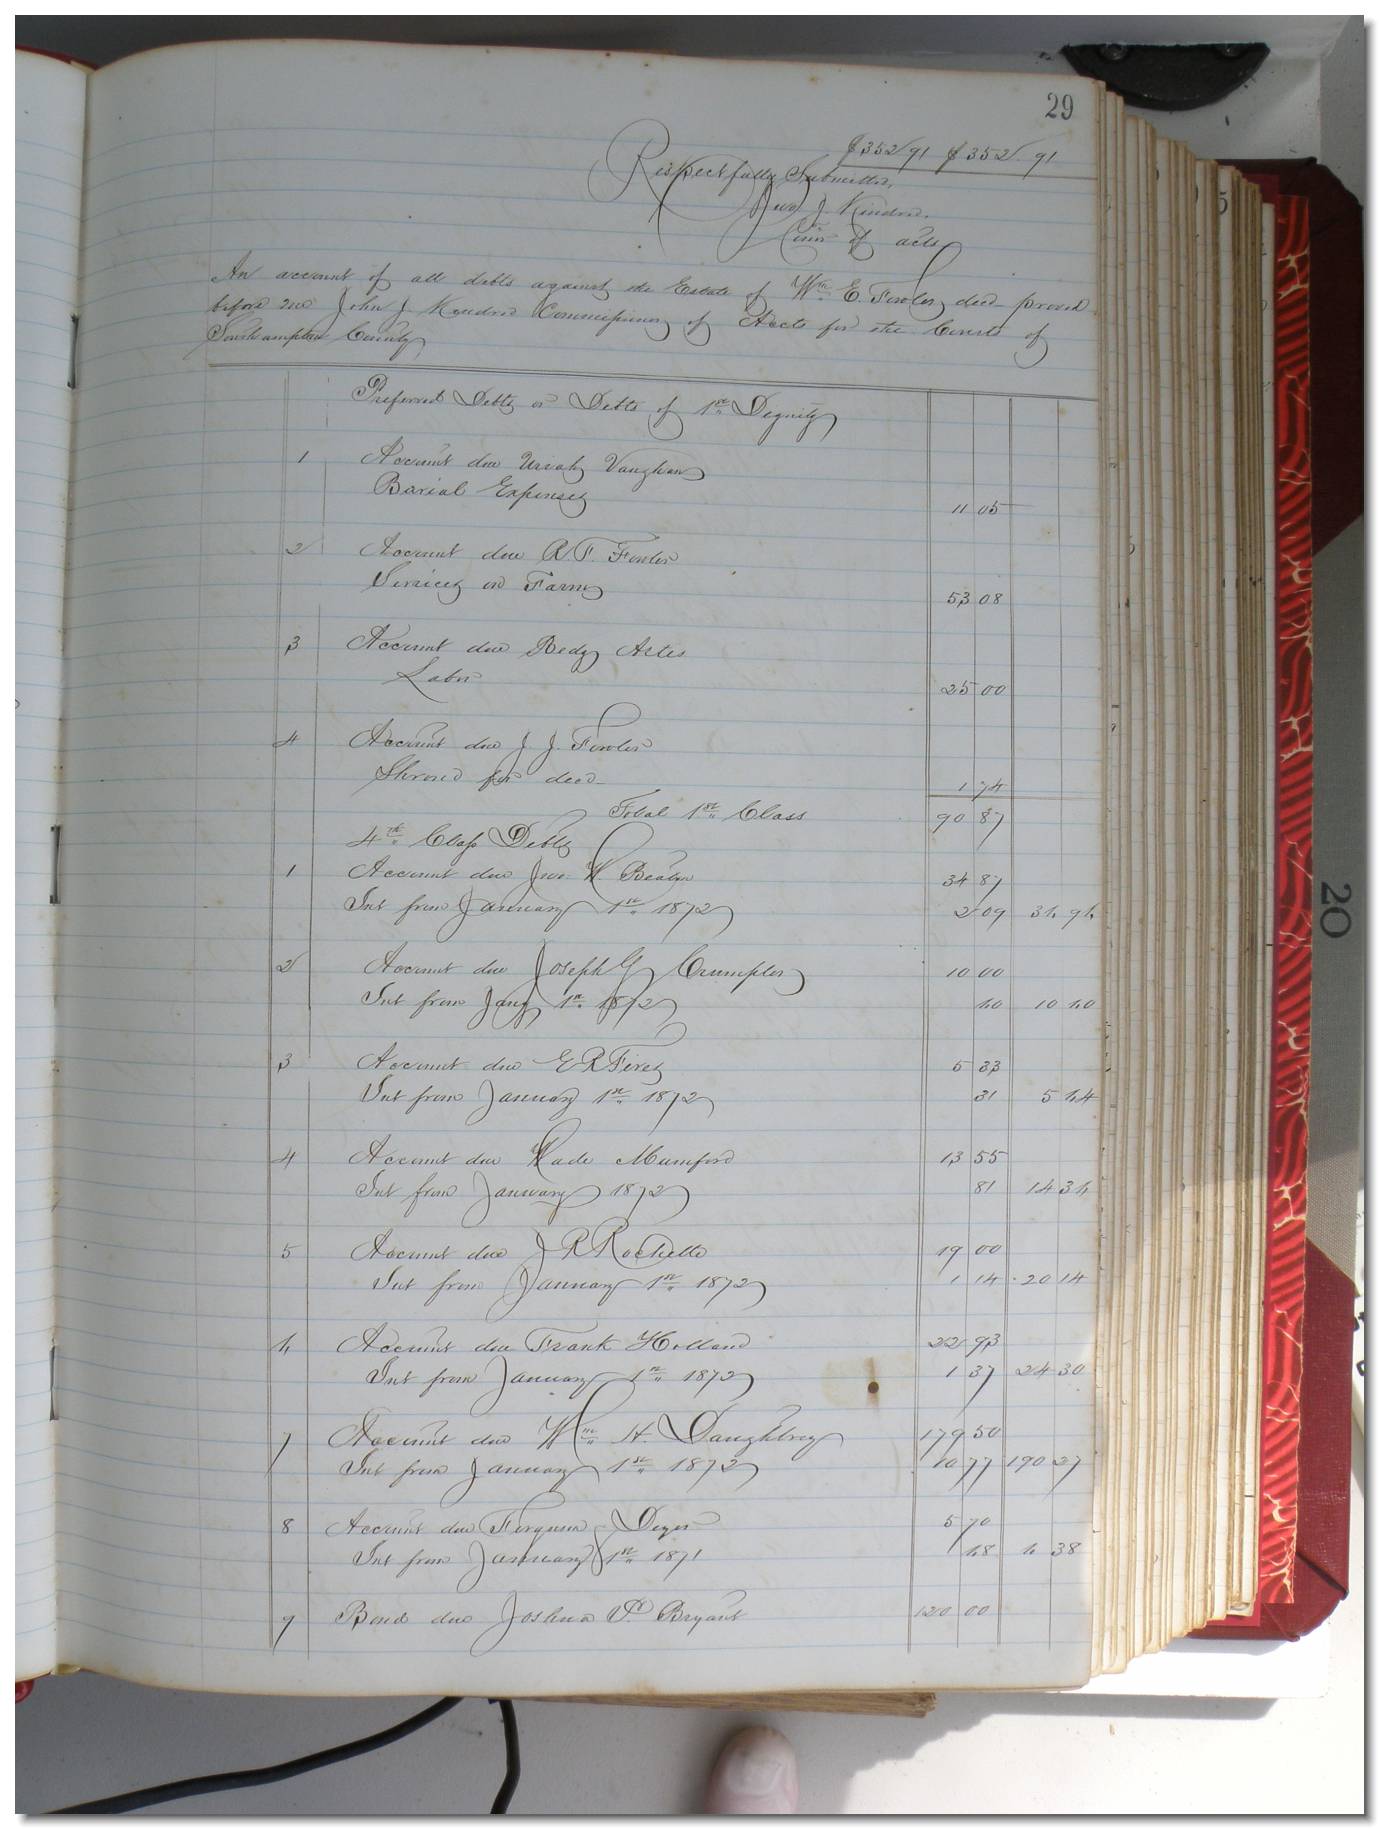 29
$352 91 $352 91
Respectfully Submitted,
Jno J. Kindred,
Com^r of accts
An account of all debts against the Estate of W^m E. Fowler, decd proved
before me John J. Kindred Commissioner of Accts for the Courts of
Southampton County
Preferred Debts or Debts of 1^st Dignity
1 Account due Uriah Vaughan
Burial Expenses 11 05
2 Account due R F. Fowler
Services on Farm 53 08
3 Account due Redy Artes
Labor 25 00
4 Account due J J. Fowler
Shroud for decd 1 74
Total 1^st Class 90 87
4^th Class Debts
1 Account due Jno. W. Beaton 34 87
Int from January 1^st 1872 2 09 36 96
2 Account due Joseph G Crumpler 10 00
Int from Jany 1^st 1872 60 10 60
3 Account due E R 5 33
Int from January 1^st 1872 31 5 64
4 Account due Wade Mumford 13 55
Int from January 1872 81 14 36
5 Account due J R Rochelle 19 00
Int from January 1^st 1872 1 14 20 14
6 Account due Frank Holland 22 93
Int from January 1^st 1872 1 37 24 30
7 Account due W^m H. Daughtrey 179 50
Int from January 1^st 1872 10 77 190 27
8 Account due Ferguson 5 70
Int from January 1^st 1871 68 6 38
9 Bond due Joshua Bryant 120 00
20